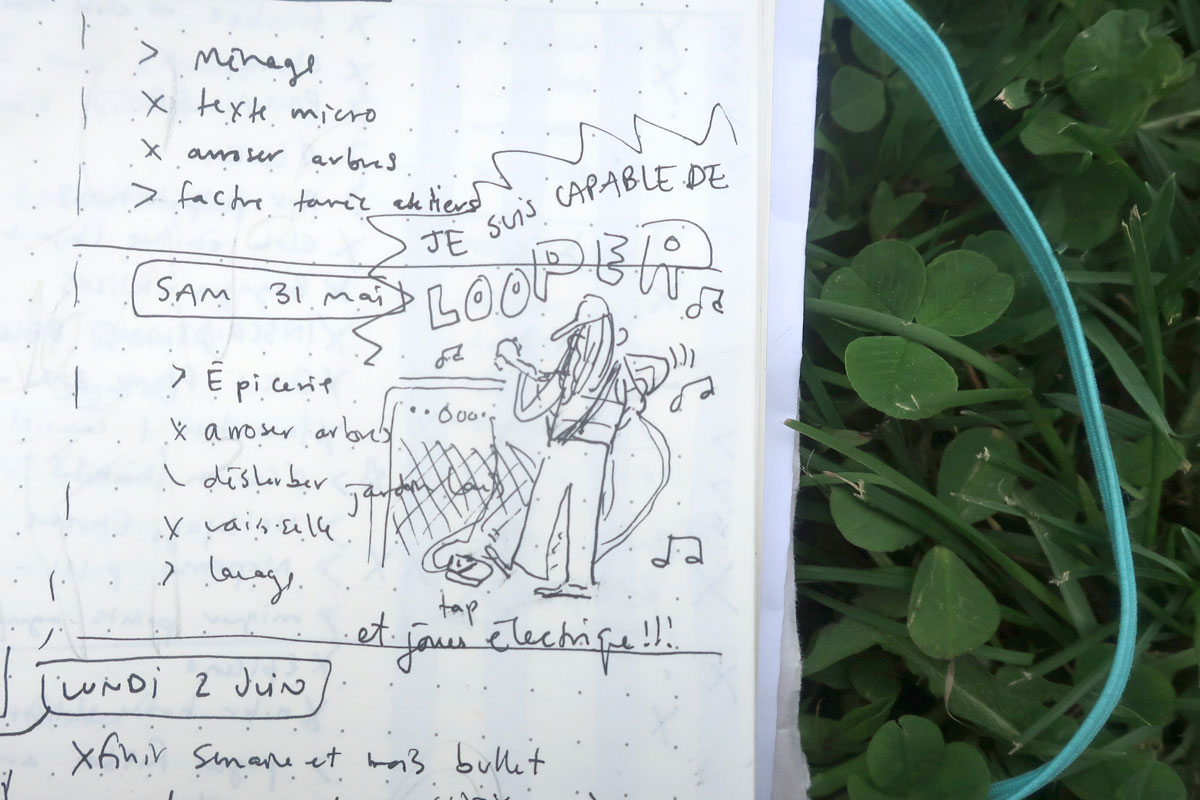 > Ménage
x texte micro
x arroser arbres
> facture tarif ateliers
JE SUIS CAPABLE DE
LOOPER
SAM 31 Mai
> Épicerie
x arroser arbres
désherber jardin
x vaisselle
> lavage
tap
et jouer électrique!!!
LUNDI 2 JUIN
x finir semaine et mois bullet